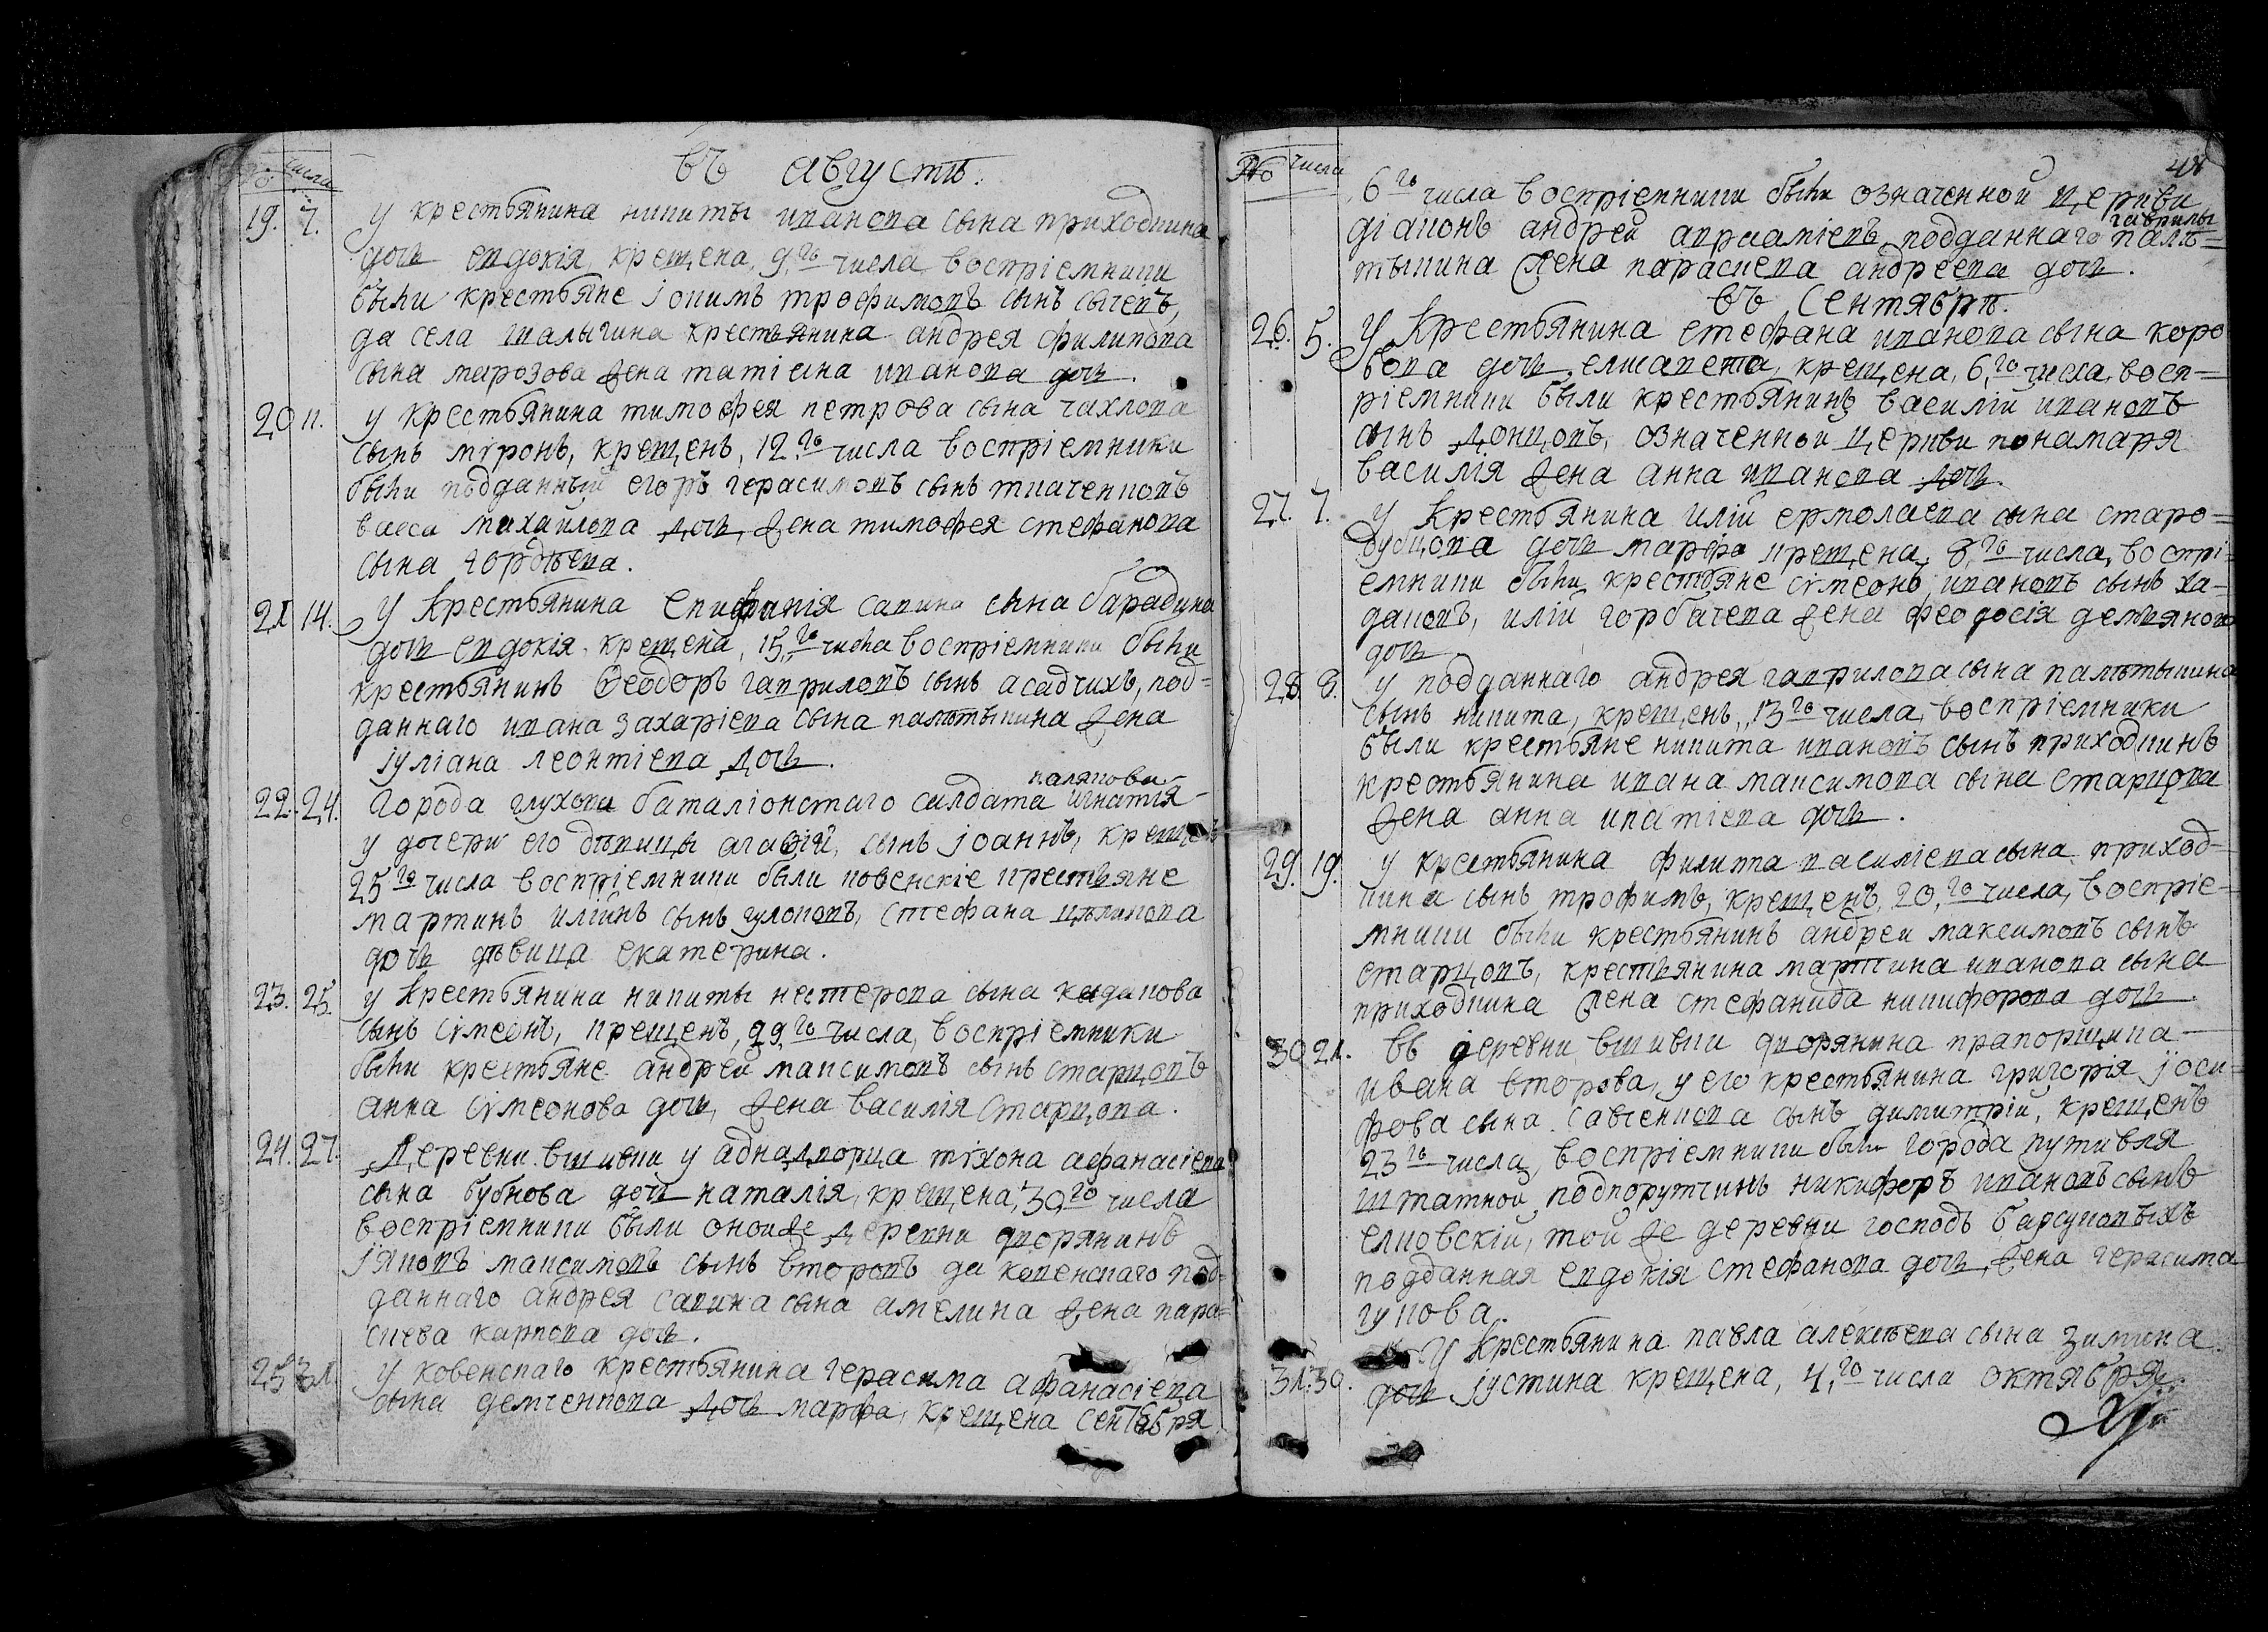 № числа
въ августѣ.
19. 7. у крестьянина никиты иванова сына приходкина
дочь евдокія, крещена, 9,го числа, воспріемники
были крестьяне іоким трофимовъ сынъ сычевъ,
да села шалыгина крестьянина андрея филипова
сына марозова жена татіана иванова дочь.
20 11. у крестьянина тимофея петрова сына чахлова
сынъ мѵронъ, крещенъ, 12,го числа воспріемники
были подданный егоръ герасимовъ сынъ ткаченковъ
васса михайлова дочь, жена тимофея стефанова
сына гордѣева.
21 14. У Крестьянина Епифанія савина сына барадина
дочь евдокія, крещена, 15,го числа воспріемники были
крестьянинъ Ѳеодоръ гавриловъ сынъ асадчихъ, под=
даннаго ивана захаріева сына палътыкина жена
іуліана леонтіева дочь.
паляковы
22. 24. Города глухова баталіонстаго салдата игнатія
у дочери его дѣвицы агаѳіи, сынъ іоаннъ, крещенъ
25го числа воспріемники были ковенскіе крестьяне
мартинъ иліинъ сынъ гулоковъ, стефана цѣликова
дочь дѣвица екатерина.
23. 25. у Крестьянина никиты нестерова сына каданова
сынъ сѵмеонъ, крещенъ, 29,го числа, воспріемники
были крестьяне андрей максимовъ сынъ старцовъ
анна сѵмеонова дочь, жена василія старцова.
24. 27. Деревни вшивки у аднадворца тихона афанасіева
сына бубнова дочь наталія, крещена, 30,го числа
воспріемники были оной же деревни дворянинъ
іяковъ максимовъ сынъ второвъ да ковенскаго под=
даннаго андрея савина сына амелина жена пара=
скева карпова дочь.
25 31. у ковенскаго крестьянина герасима афанасіева
сына демченкова дочь марфа, крещена сентября
№ числа
6го числа воспріемники были означенной церкви
гаврилы
діаконъ андрей авраамісвъ, подданнаго палъ=
тыкина жена параскева андреева дочь.
въ Сентябрѣ.
26. 5. У Крестьянина стефана иванова сына коро
вова дочь, елисавета, крещена, 6,го числа, восп=
ріемники были крестьянинъ василій ивановъ
сынъ донцовъ, означенной церкви понамаря
василія жена анна иванова дочь.
27. 7. у Крестьянина иліи ермолаева сына старо=
дубцова дочь марфа крещена, 8,го числа, воспрі=
емники были крестьяне сѵмеонъ ивановъ сынъ ка=
дановъ, иліи горбачева жена феодосія демьянова
дочь
28 8. у подданнаго андрея гаврилова сына палътыкина
сынъ никита, крещенъ, 13го числа, воспріемники
были крестьяне никита ивановъ сынъ приходкинъ
крестьянина ивана максимова сына старцова
жена анна ипатіева дочь.
29. 19. у крестьянина филипа василіева сына приход=
кина сынъ трофимъ, крещенъ, 20,го числа, воспріе=
мники были крестьянинъ андреи максимовъ сынъ
старцовъ, крестьянина мартина иванова сына
приходкина жена стефанида никифорова дочь.
30 21. въ деревни вшивки дворянина прапорщика
ивана второва, у его крестьянина григорія іоси=
фова сына савченкова сынъ димитріи, крещенъ
23го числа, воспріемники были города путивля
штатной подпорутчикъ никифоръ ивановъ сынъ
елповскій, той же деревни господъ барсуковыхъ
подданная евдокія стефанова дочь, жена герасима
гукова.
31. 30. У Крестьянина павла алексѣева сына зимина
дочь іустина крещена, 4,го числа октября.